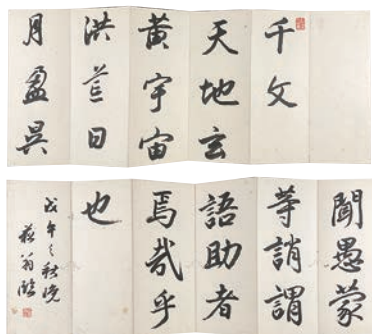 千文
天地玄
黃宇宙
洪荒日
月盈昃
聞愚蒙
等誚謂
語助者
焉哉乎
也
戊午之秋晚
翁